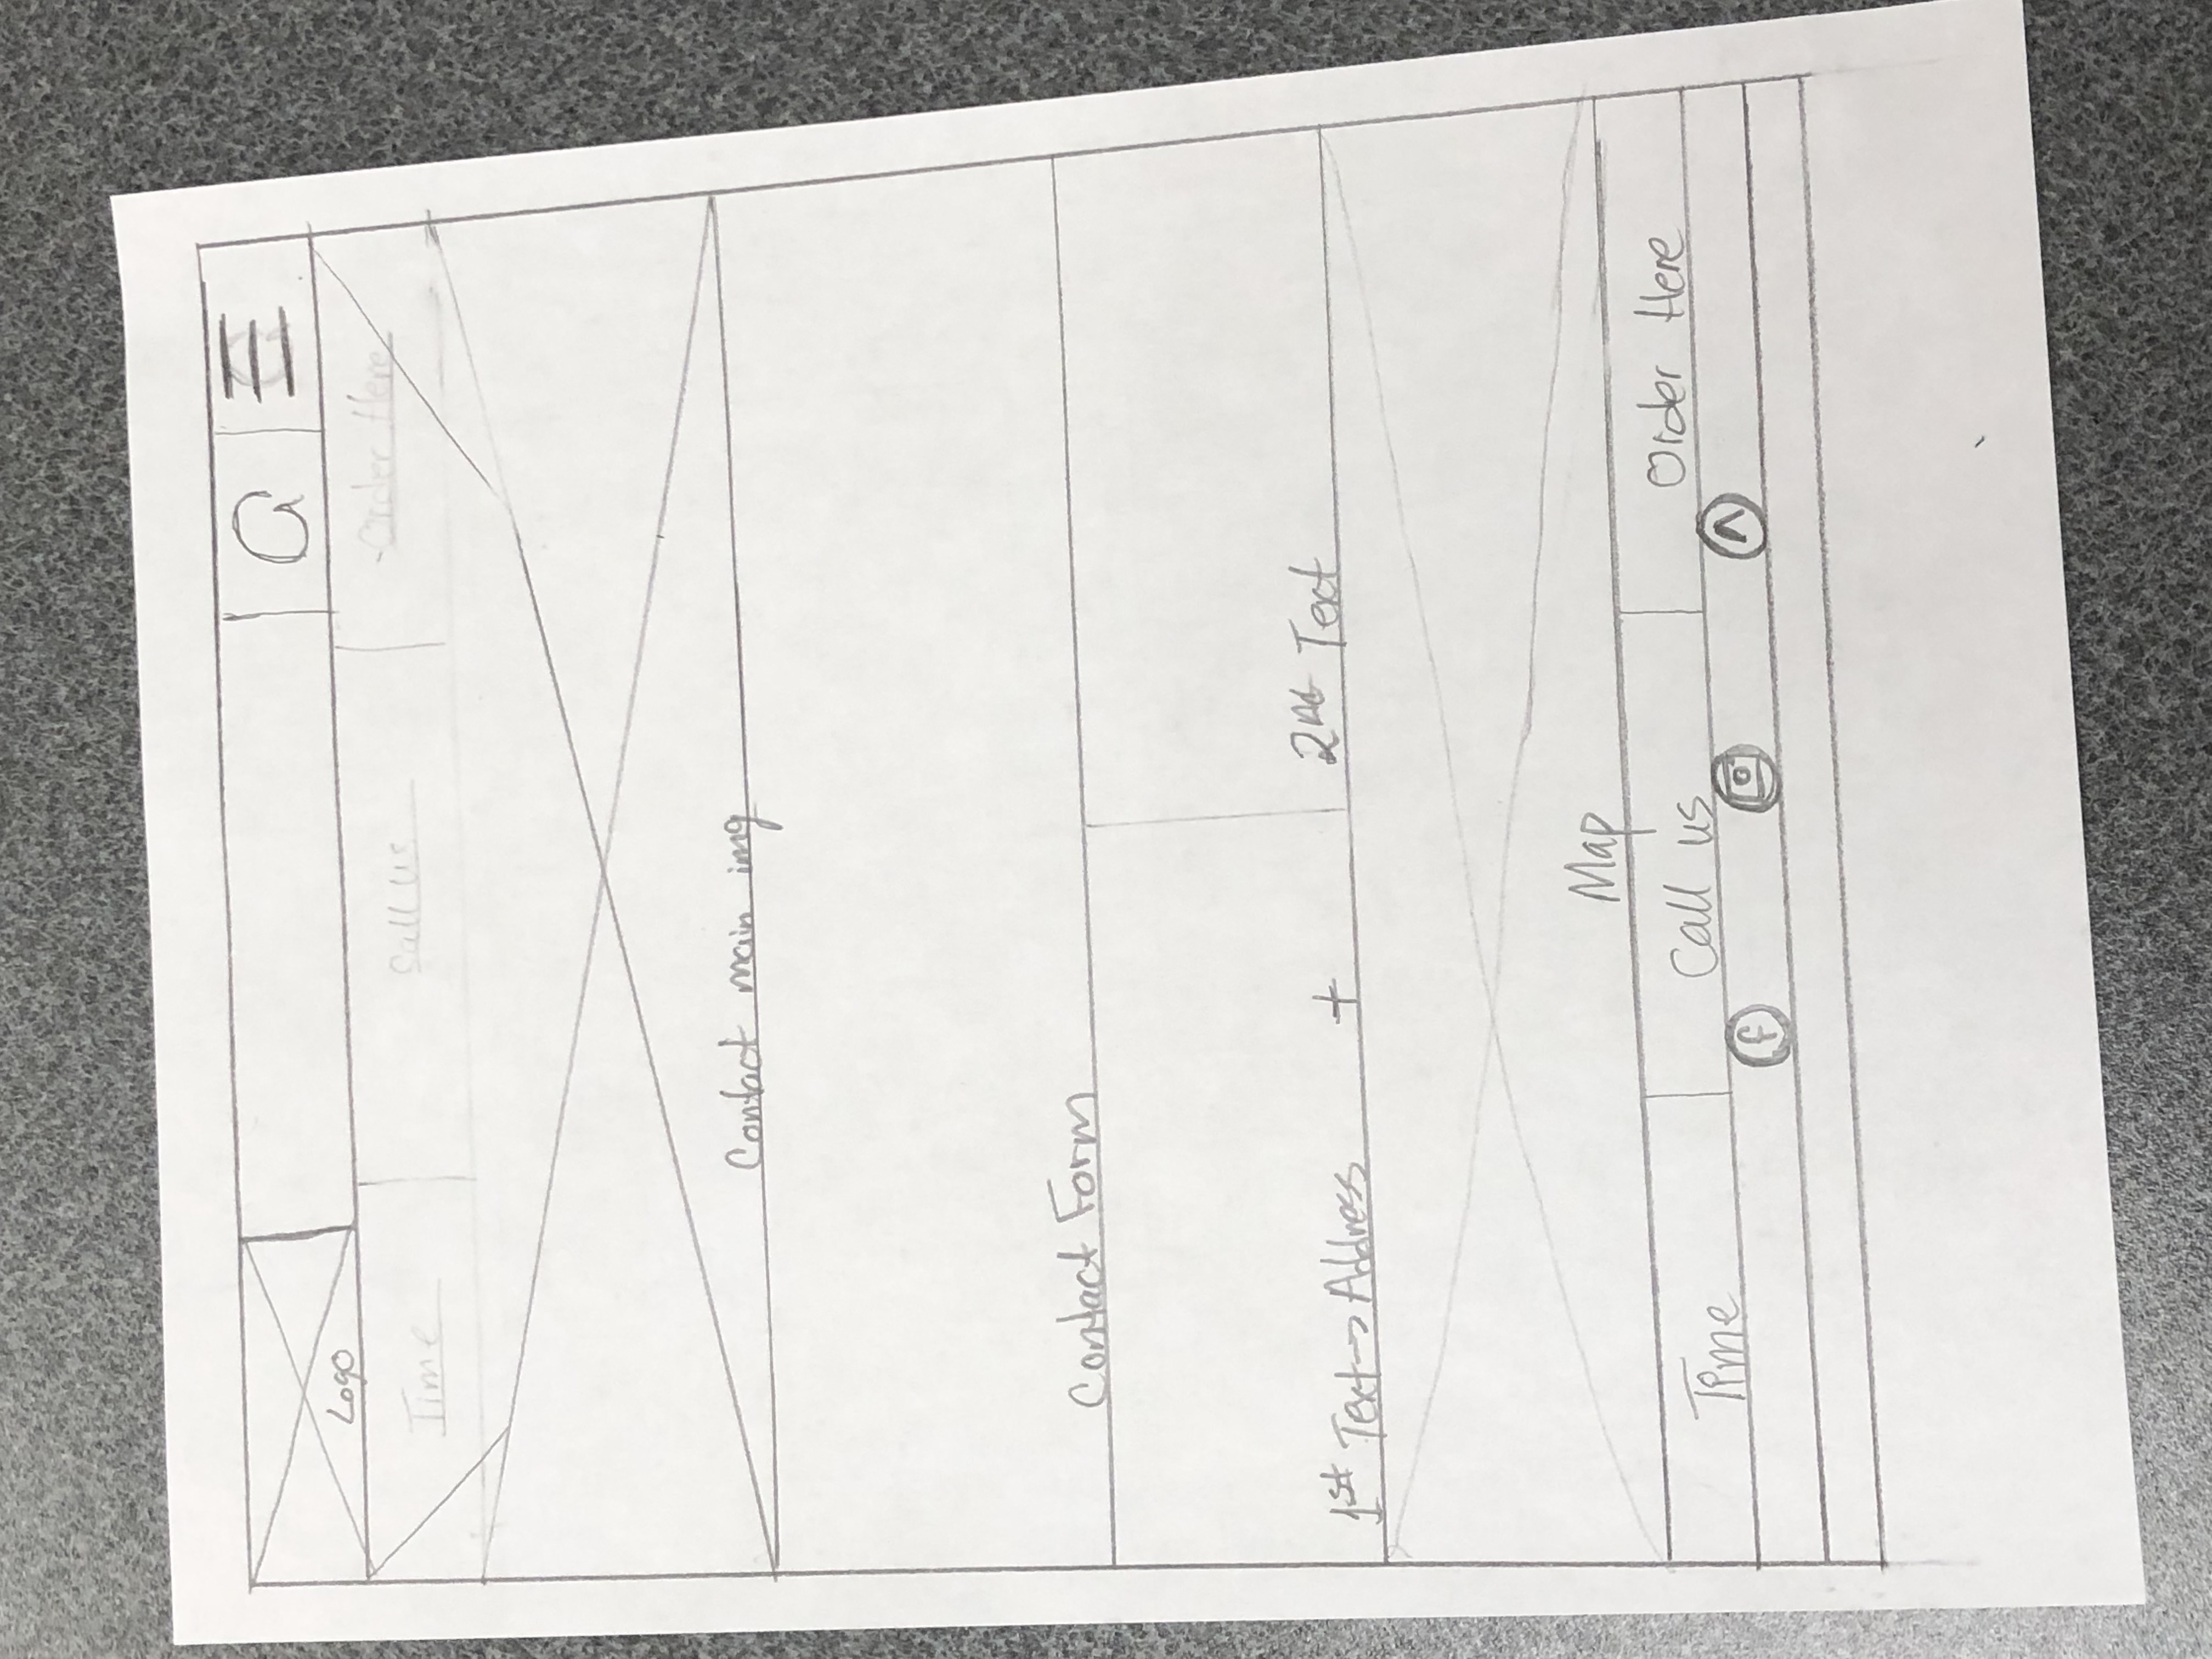 Logo
Time
Call us
Order Here
Contact main img
Contact Form
1st Text → Address + 2nd Text
Map
Time
Call us
Order Here
f